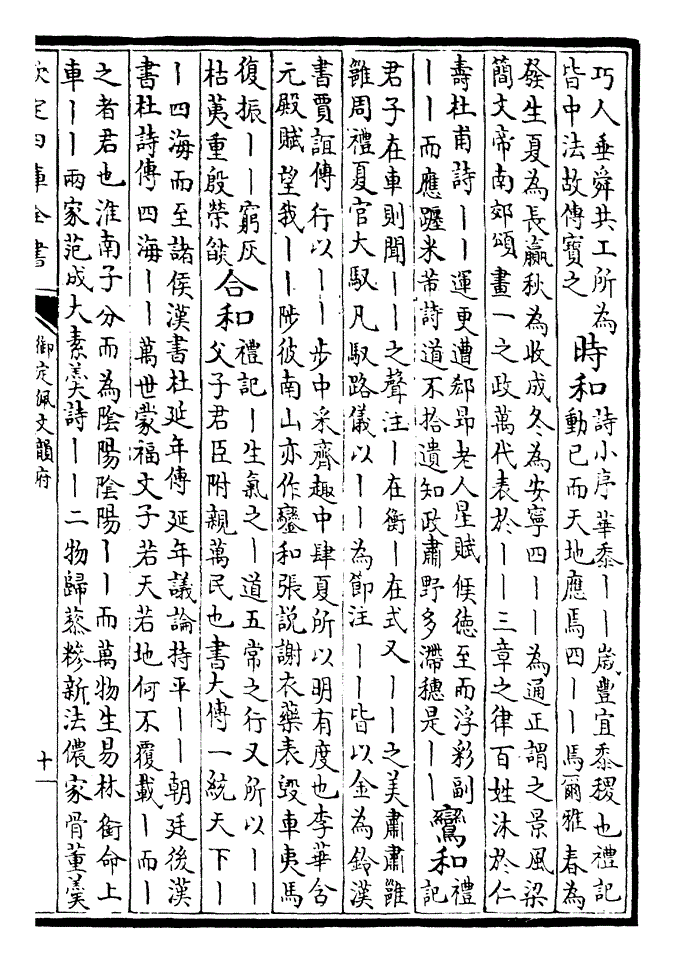 巧人垂舜共工所為
皆中法故傳寶之
時和
詩小序華黍丨丨歲豐宜黍稷也禮記
動已而天地應焉四丨丨焉爾雅春為
發生夏為長贏秋為收成冬為安寧四丨丨為通正謂之景風梁
簡文帝南郊頌畫一之政萬代表於丨丨三章之律百姓沐於仁
壽杜甫詩丨丨運更遭郄昂老人星賦候徳至而浮彩副
丨丨而應躔米芾詩道不拾遺知政肅野多滯穗是丨丨
鸞和
禮
記
君子在車則聞丨丨之聲注丨在衡丨在式又丨丨之美肅肅雝
雝周禮夏官大馭凡馭路儀以丨丨為節注丨丨皆以金為鈴漢
書賈誼傳行以丨丨步中采齊趣中肆夏所以明有度也李華含
元殿賦望我丨丨陟彼南山亦作鑾和張説謝衣藥表毀車夷馬
復振丨丨窮灰
枯荑重殷榮燄
合和
禮記丨生氣之丨道五常之行又所以丨丨
父子君臣附親萬民也書大傳一統天下丨
丨四海而至諸侯漢書杜延年傳延年議論持平丨丨朝廷後漢
書杜詩傳四海丨丨萬世蒙福文子若天若地何不覆載丨而丨
之者君也淮南子分而為陰陽陰陽丨丨而萬物生易林銜命上
車丨丨兩家范成大素羮詩丨丨二物歸藜糝新法儂家骨董羮
欽定四庫全書
御定佩文韻府
十